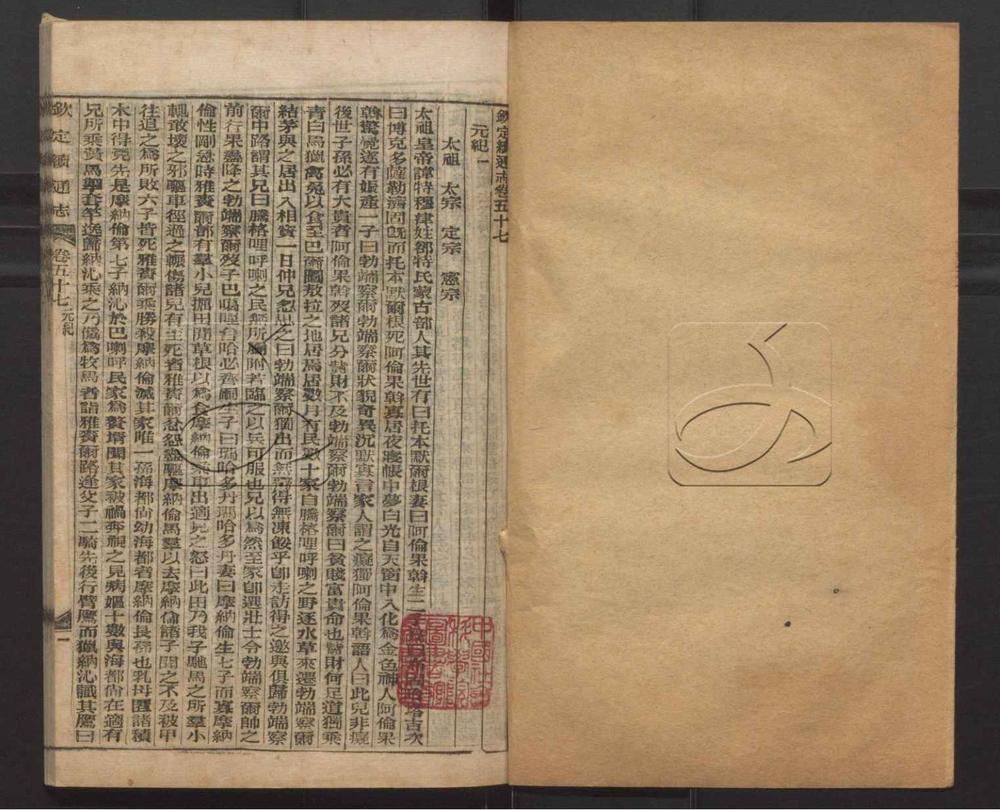 欽定續通志卷五十七
元紀一
太祖 太宗 定宗 憲宗
太祖皇帝諱特穆津姓郤特氏蒙古部人其先世有曰托本默爾根妻曰阿倫果斡生二子長曰布
曰博克多薩勒濟固既而托本默爾根死阿倫果斡寡居夜寢帳中夢白光自天窗中入化為金色神人阿倫果
斡驚覺遂有娠產一子曰勃端察爾勃端察爾狀貌奇異沉默寡言家人謂之癡獨阿倫果斡語人曰此兒非癡
後世子孫必有大貴者阿倫果斡歿諸兄分貲財不及勃端察爾勃端察爾曰貧賤富貴命也貲財何足道獨乘
青白馬獵禽兔以食至巴爾圖敖拉之地居焉居數月有民數十家自騰格哩呼喇之野逐水草來遷勃端察爾
結茅與之居出入相資一日仲兄忽思之曰勃端察爾獨出而無齎得無凍餒乎卽走訪得之邀與俱歸勃端察
爾中路謂其兄曰騰格哩呼喇之民無所屬附若臨之以兵可服也兄以為然至家卽選壯士令勃端察爾帥之
前行果盡降之勃端察爾歿子巴噶哩台哈必齊嗣生子曰瑪哈多丹瑪哈多丹妻曰摩納倫生七子而寡摩納
倫性剛急時雅賚爾部有羣小兒掘田間草根以為食摩納倫乘車出適見之怒曰此田乃我子馳馬之所羣小
輒敢壞之邪驅車徑過之輾傷諸兒有至死者雅賚爾忿怨盡驅摩納倫馬羣以去摩納倫諸子聞之不及被甲
往追之為所敗六子皆死雅賚爾乘勝殺摩納倫滅其家唯一孫海都尚幼海都者摩納倫長孫也乳母匿諸積
木中得免先是摩納倫第七子納沁於巴喇呼民家為贅壻聞其家被禍奔視之見病嫗十數與海都尚在適有
兄所乘黃馬掣套竿逸歸納沁乘之乃僞為牧馬者詣雅賚爾路逢父子二騎先後行臂鷹而獵納沁識其鷹曰
欽定續通志 卷五十七 元紀 一